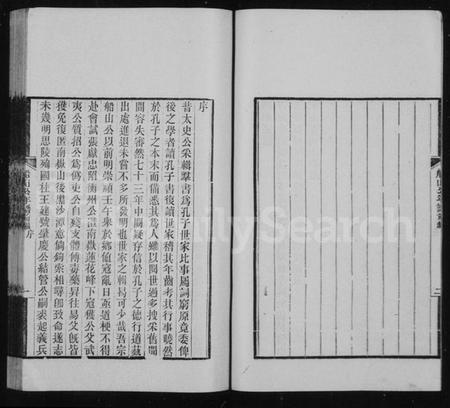 序
昔太史公采輯羣書爲孔子世家比事屬詞窮原竟委俾
後之學者讀孔子書復讀世家稽其年齒考其行事曉然
於孔子之本末而備悉其爲人雖以閱世過多搜采舊聞
間容失審然七十三年中闕疑存信於孔子之德行道藝
出處進退未嘗不多所發明也世家之輯曷可少哉吾宗
船山公以前明崇禎壬午舉於鄉值寇亂日亟道梗不得
赴會試張獻忠陷衡州公匿南嶽蓮花峰下寇獲公父武
夷公質招公爲僞吏公自殘支體傅毒藥舁往易父旣皆
獲免復匿南嶽山後
未幾明思陵殉國桂王建號肇慶公結管公嗣裘起義兵
船山公年譜前編
序
一
二